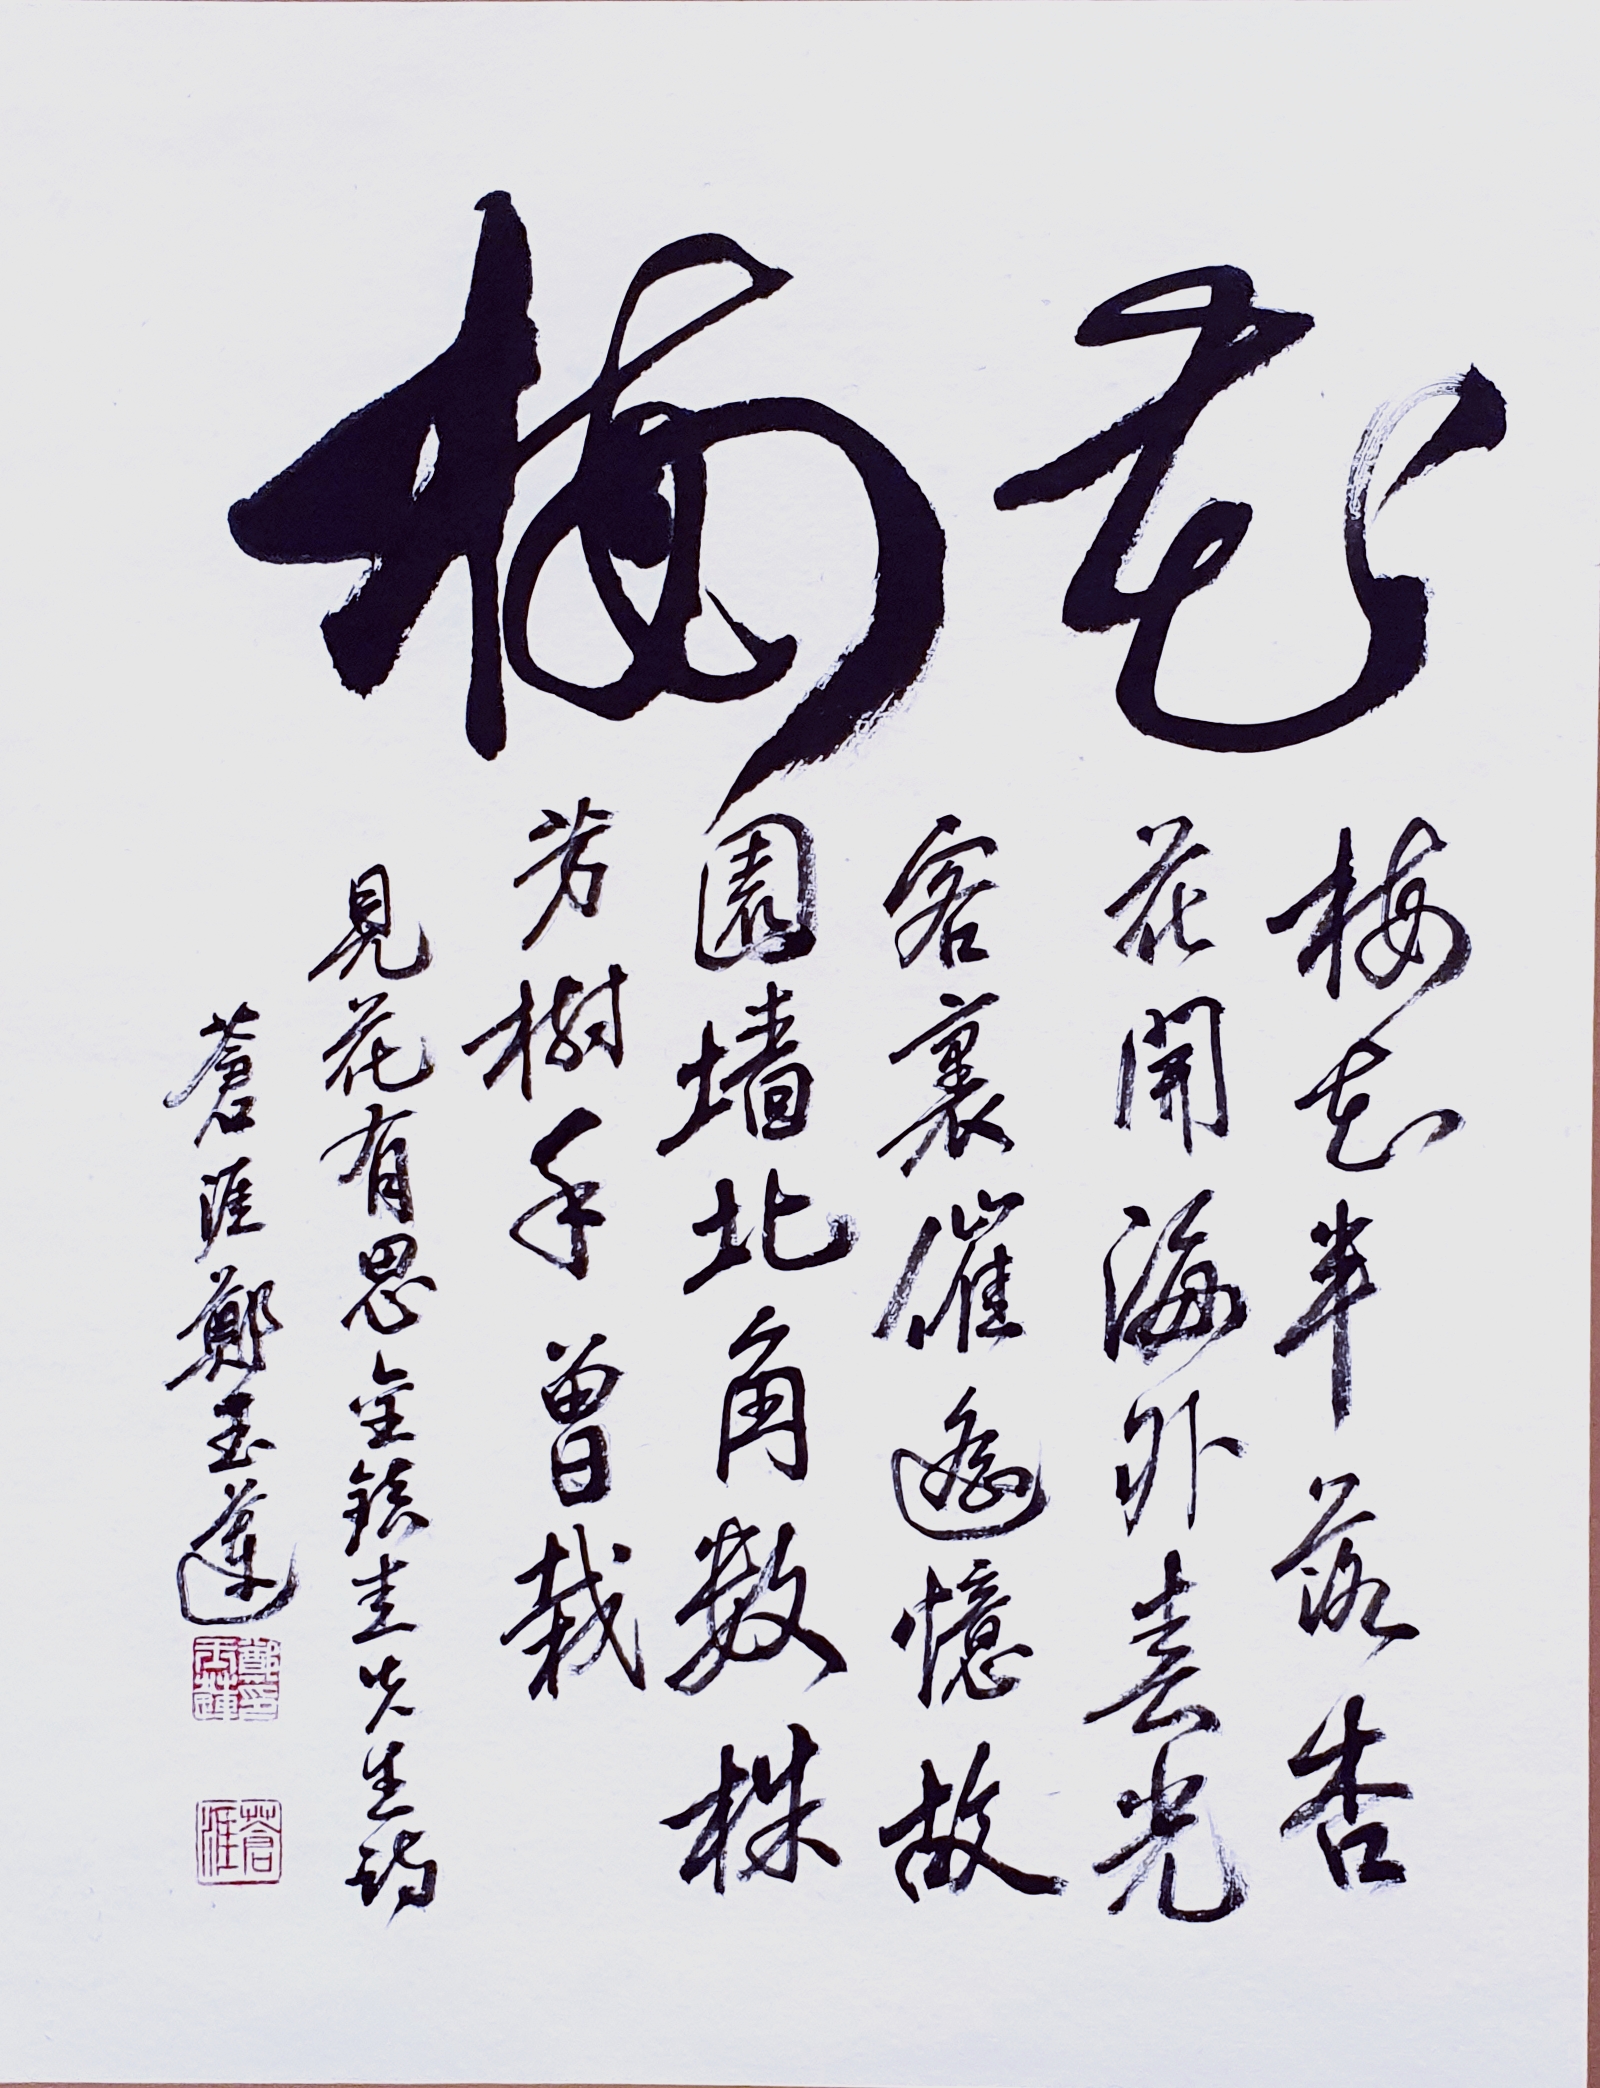 梅花
梅花半落杏
花開海外春光
客裏催遙憶故
園墙北角数株
芳樹手曾栽
見花有思 金鎮圭先生詩
蒼涯鄭玉蓮
鄭印玉蓮
蒼涯